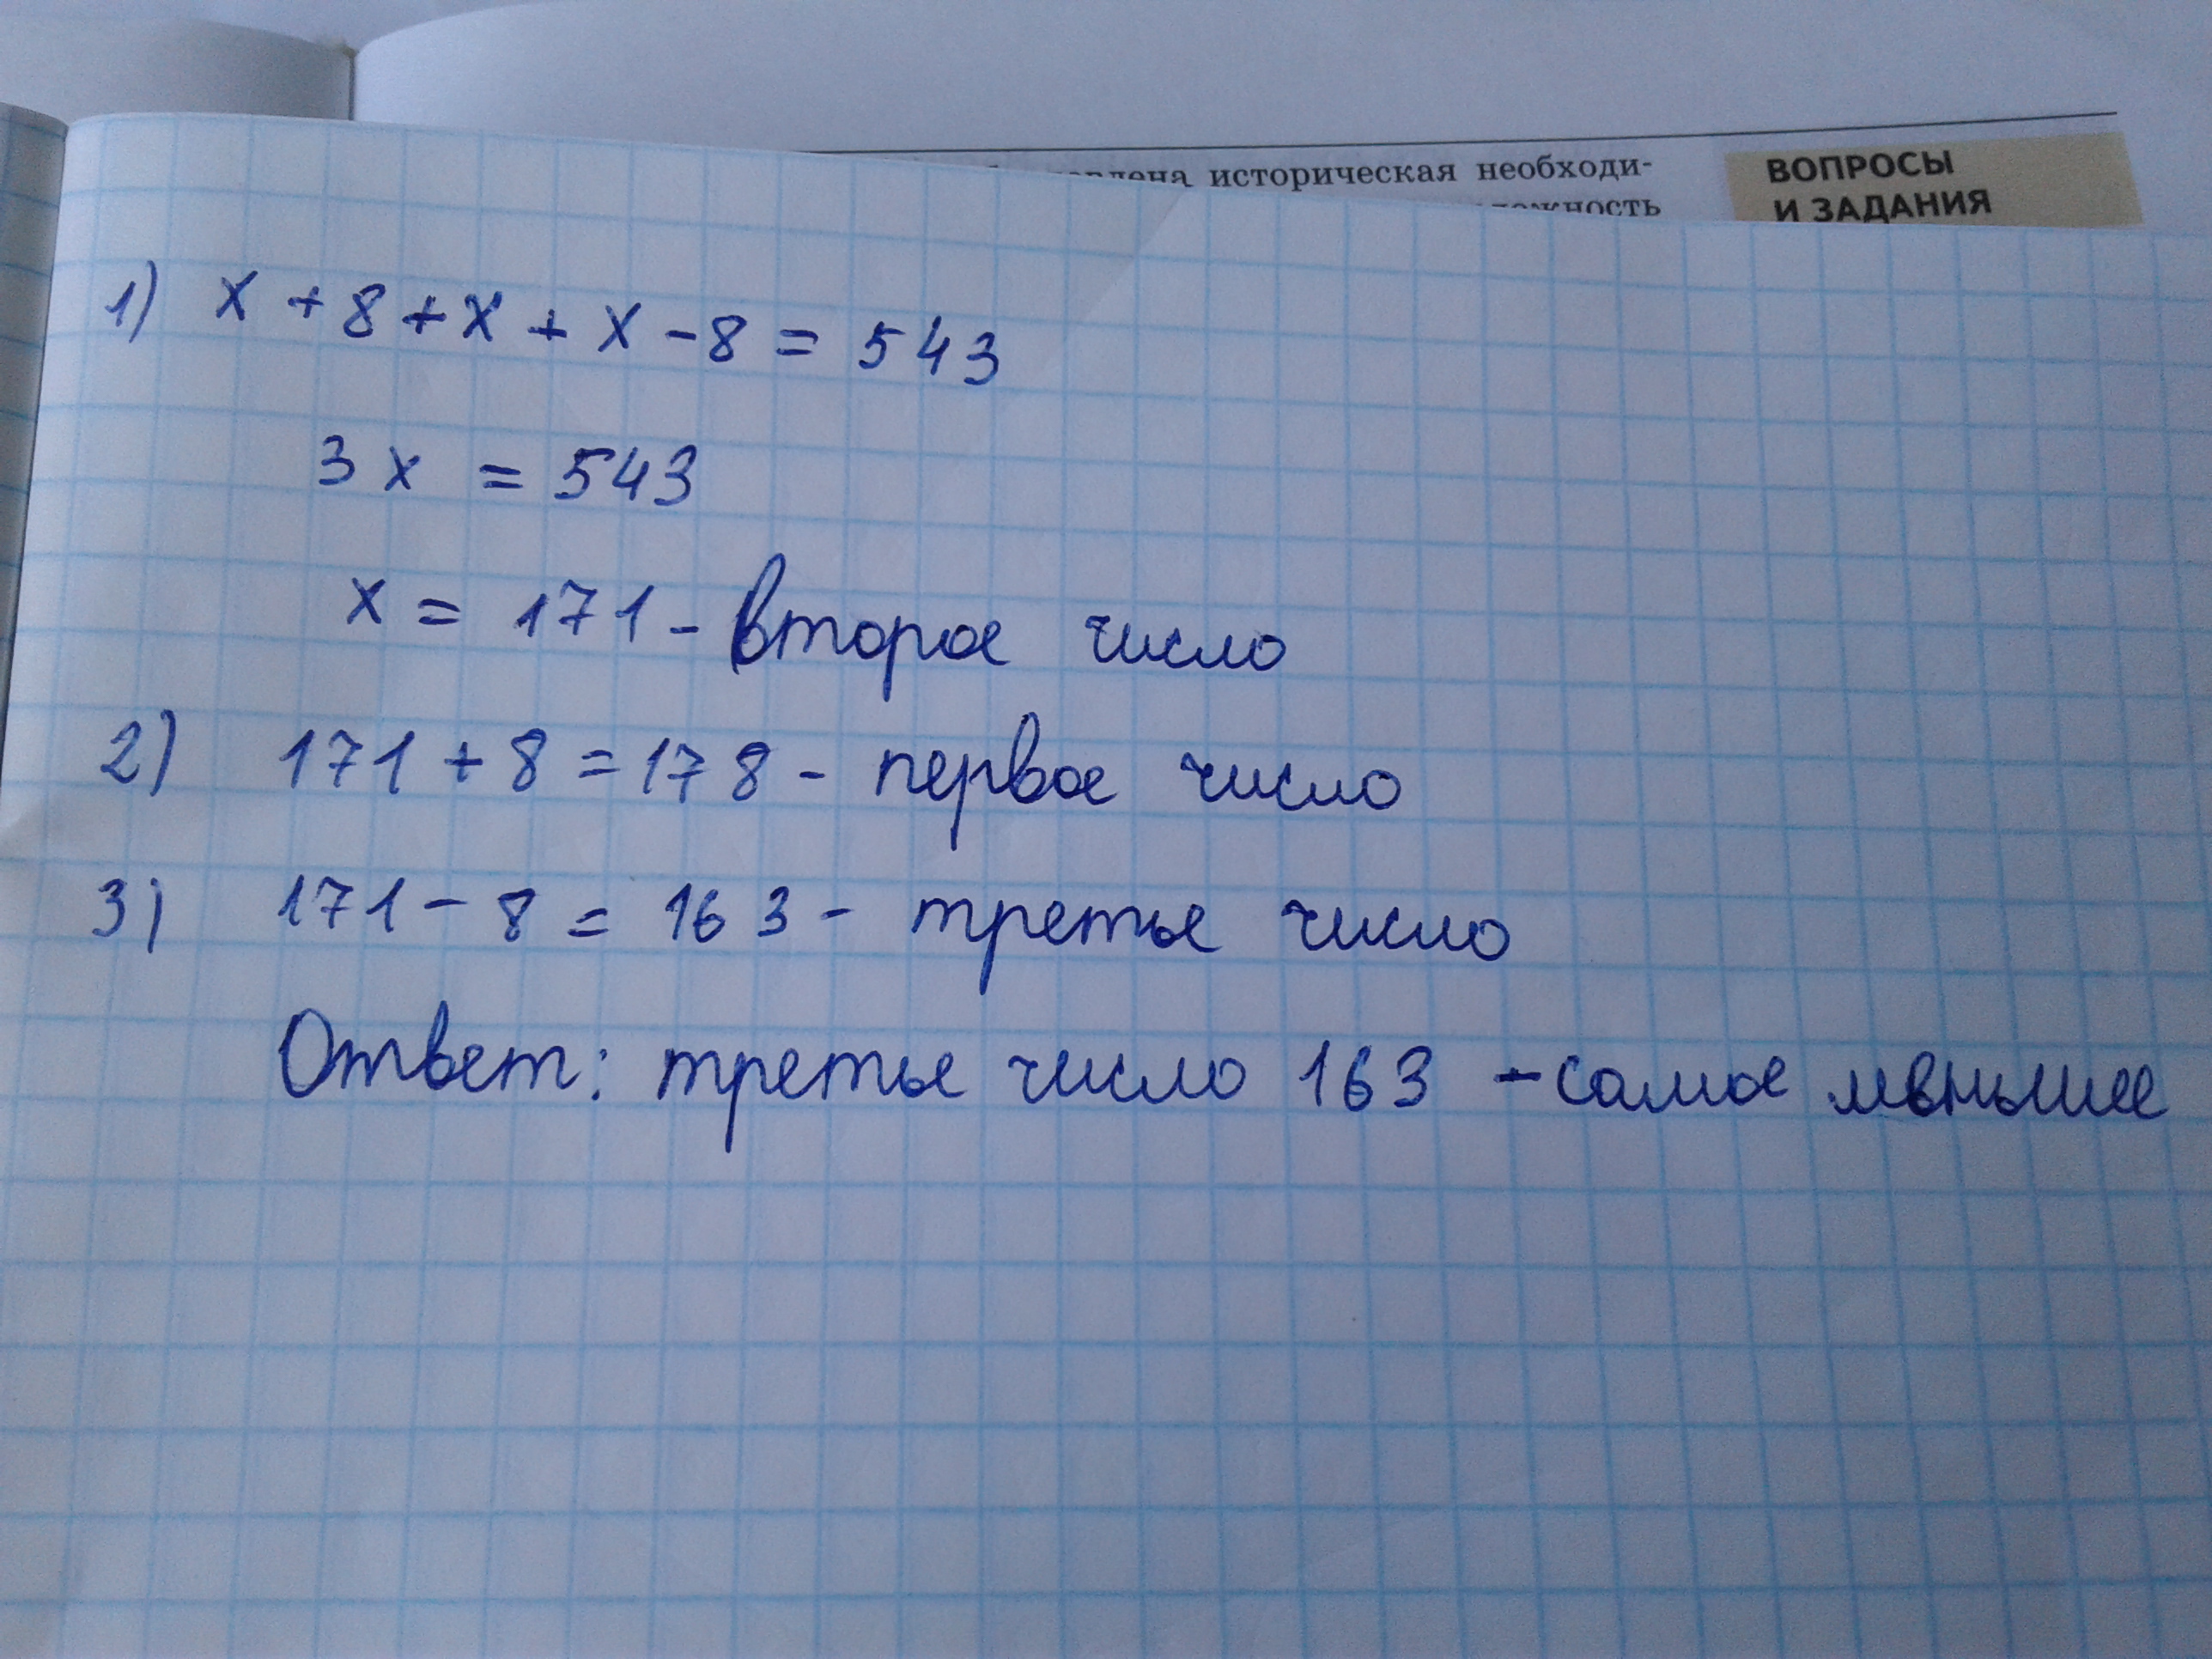 историческая необходи-
ВОПРОСЫ
И ЗАДАНИЯ
1) x + 8 + x + x - 8 = 543
3x = 543
x = 171 - второе число
2) 171 + 8 = 178 - первое число
3) 171 - 8 = 163 - третье число
Ответ: третье число 163 - самое меньшее